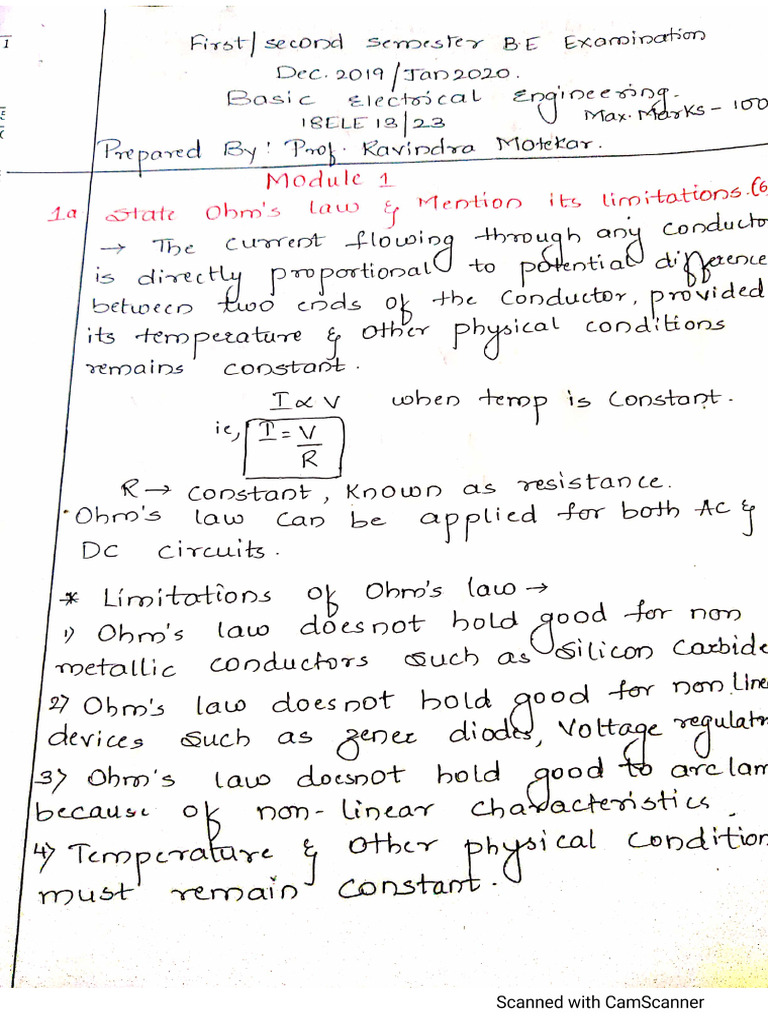 First/second semester BE Examination
Dec. 2019/Jan 2020.
Basic Electrical Engineering.
Max. Marks - 100
18ELE 13/23
Prepared By: Prof. Ravindra Motekar.
Module 1
1a) State Ohm's law & Mention its limitations. (6
→ The current flowing through any conducto
is directly proportional to potential difference
between two ends of the conductor, provided
its temperature & other physical conditions
remains constant.
I ∝ V when temp is constant.
ie, I = V/R
R → constant, known as resistance.
Ohm's law can be applied for both AC &
DC circuits.
* Limitations of Ohm's law →
1) Ohm's law doesnot hold good for non
metallic conductors such as silicon carbide
2) Ohm's law doesnot hold good for non line
devices such as zener diodes, voltage regulat
3) Ohm's law doesnot hold good to arc lam
because of non-linear characteristics.
4) Temperature & other physical condition
must remain constant.
Scanned with CamScanner